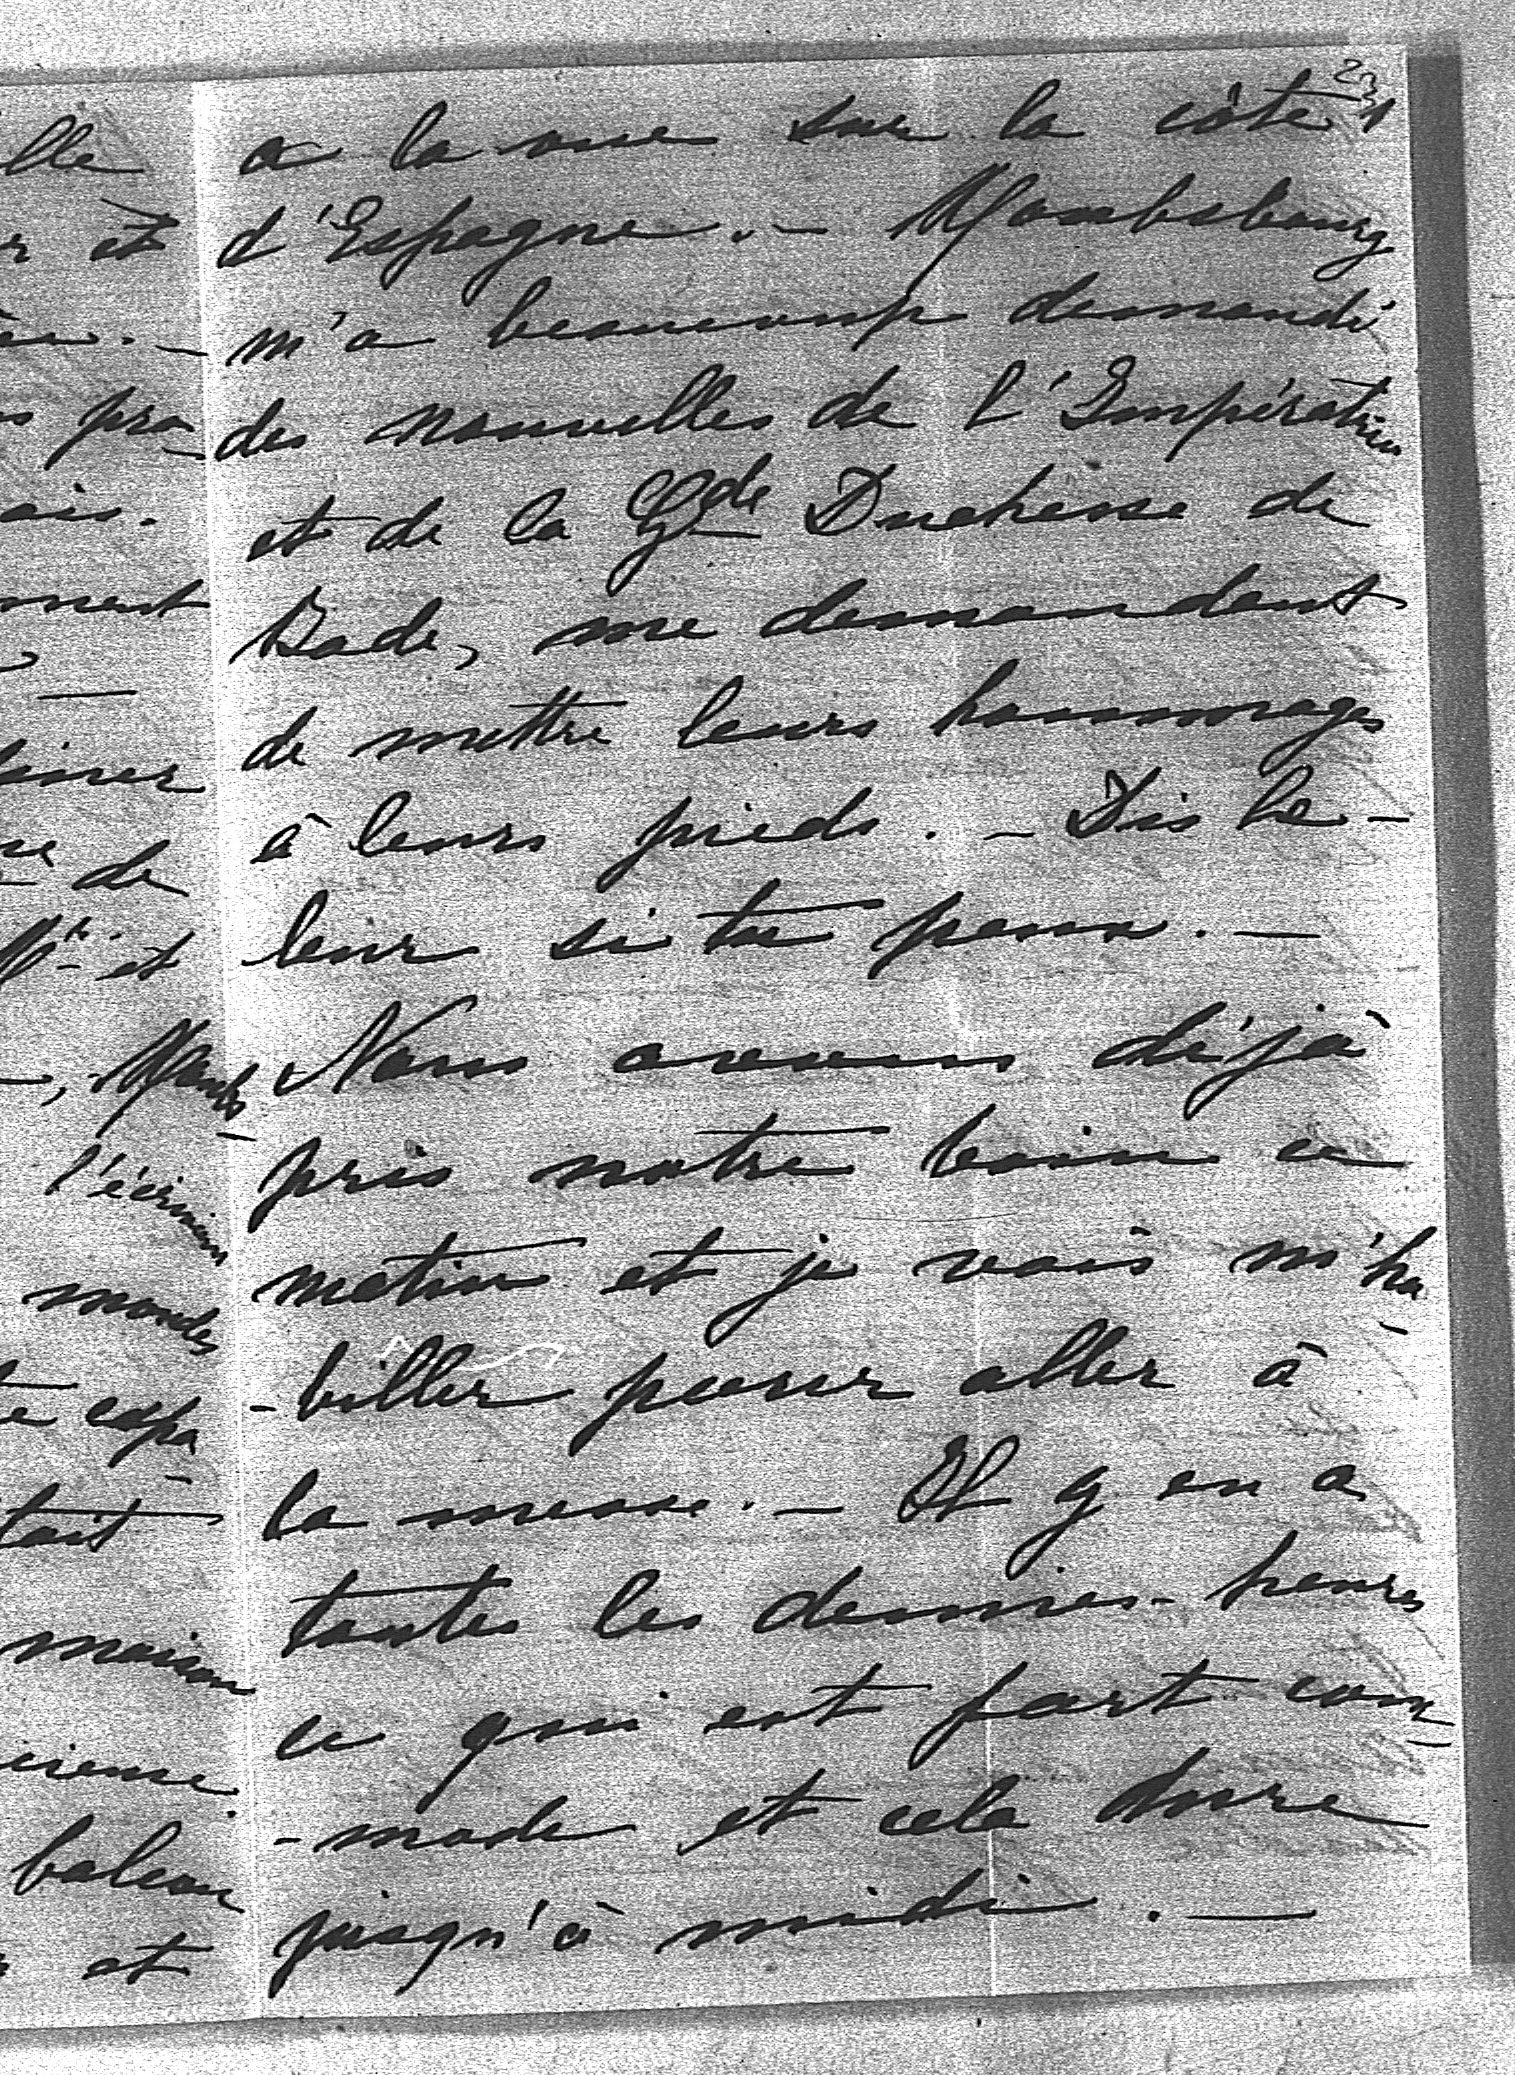 23
a la vue sur la côte
d'Espagne. — Mombsbourg
m'a beaucoup demandé
des nouvelles de l'Impératrice
et de la Gde Duchesse de
Bade, me demandant
de mettre leurs hommages
à leurs pieds. — Dis le-
leur si tu peux. —
Nous avons déjà
pris notre bain ce
matin et je vais m'ha-
-biller pour aller à
la messe. — Il y en a
toutes les demies-heures
ce qui est fort com-
-mode et cela dure
jusqu'à midi. —
lle
et
pro-
ais.
ment
de
et
l'écrivain
mondes
tait
maison
balcon
et